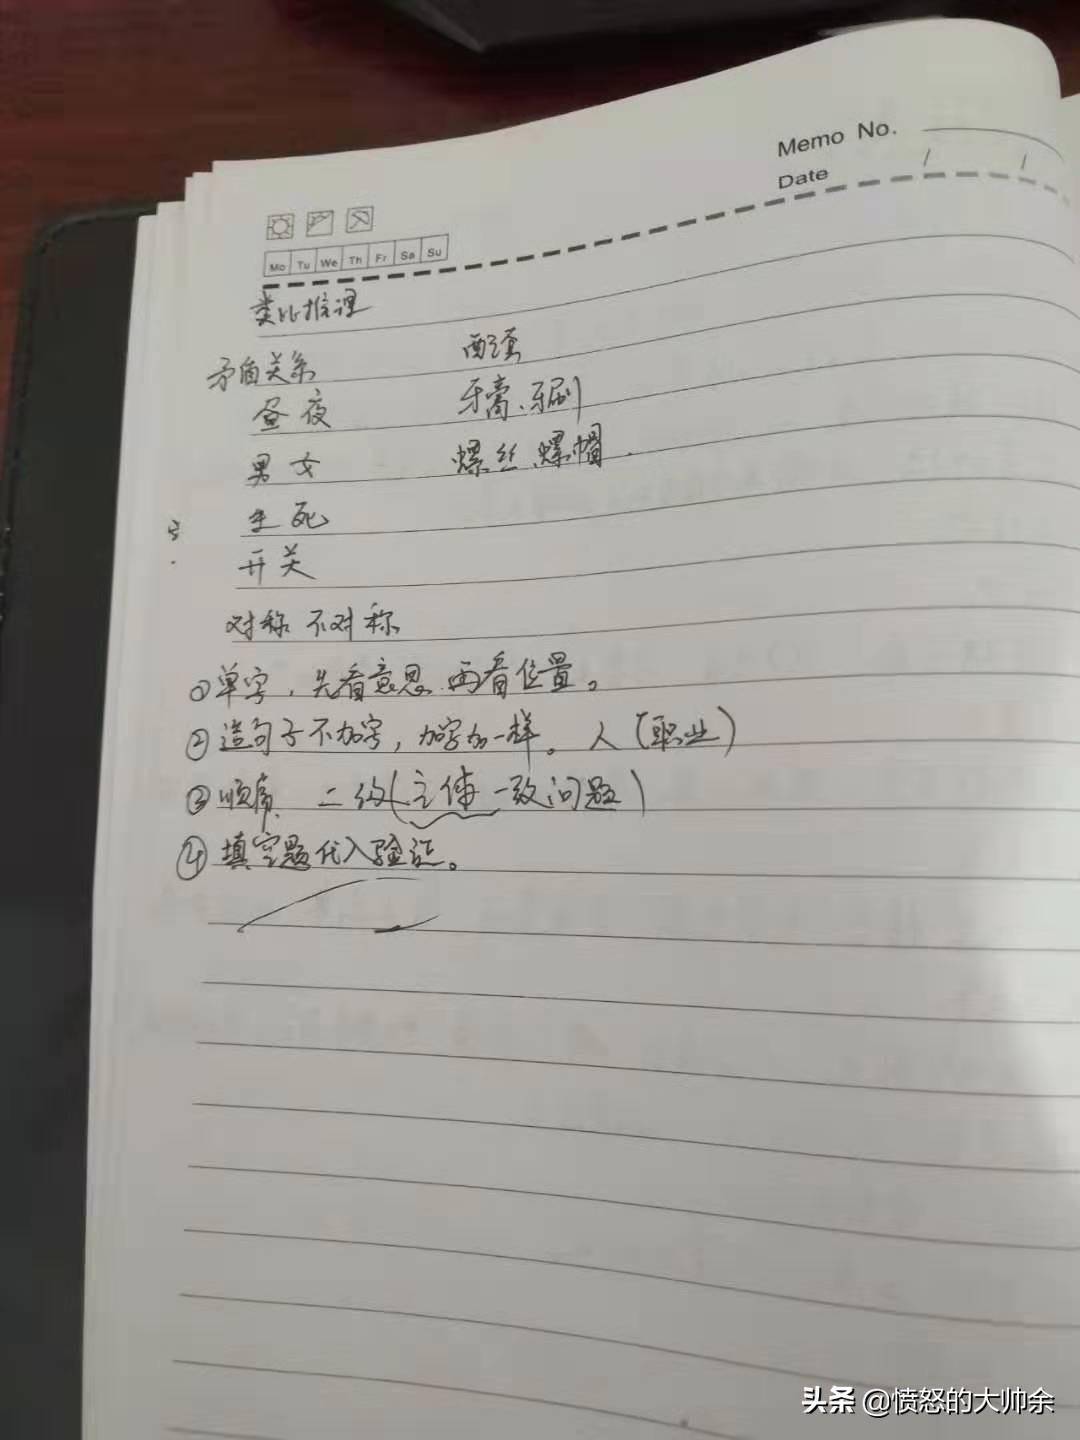 Memo No.
Date / /
Mo Tu We Th Fr Sa Su
类比推理
矛盾关系 配套
昼夜 牙膏、牙刷
男女 螺丝、螺帽.
生死
开关
对称 不对称
①单字，先看意思 再看位置。
②造句子不加字，加字加一样。人（职业）
③顺序、二级（主体一致问题）
④填空题代入验证。
头条 @愤怒的大帅余